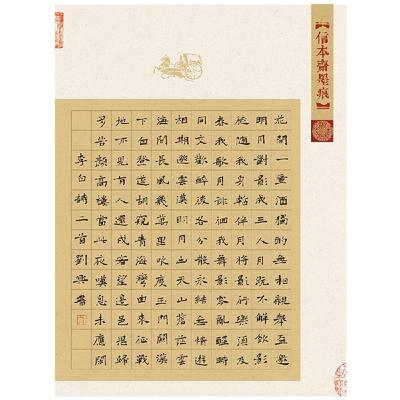 【信本齋墨痕】
花間一壺酒獨酌無相親舉盃邀
明月對影成三人月既不解飲影
徒隨我身暫伴月將影行樂須及
春我歌月徘徊我舞影零亂醒時
同交歡醉後各分散永結無情遊
相期邈雲漢明月出天山蒼茫雲
海間長風幾萬里吹度玉門關漢
下白登道胡窺青海灣由來征戰
地不見有人還戍客望邊邑思歸
多苦顏高樓當此夜嘆息未應閑
李白詩二首劉興